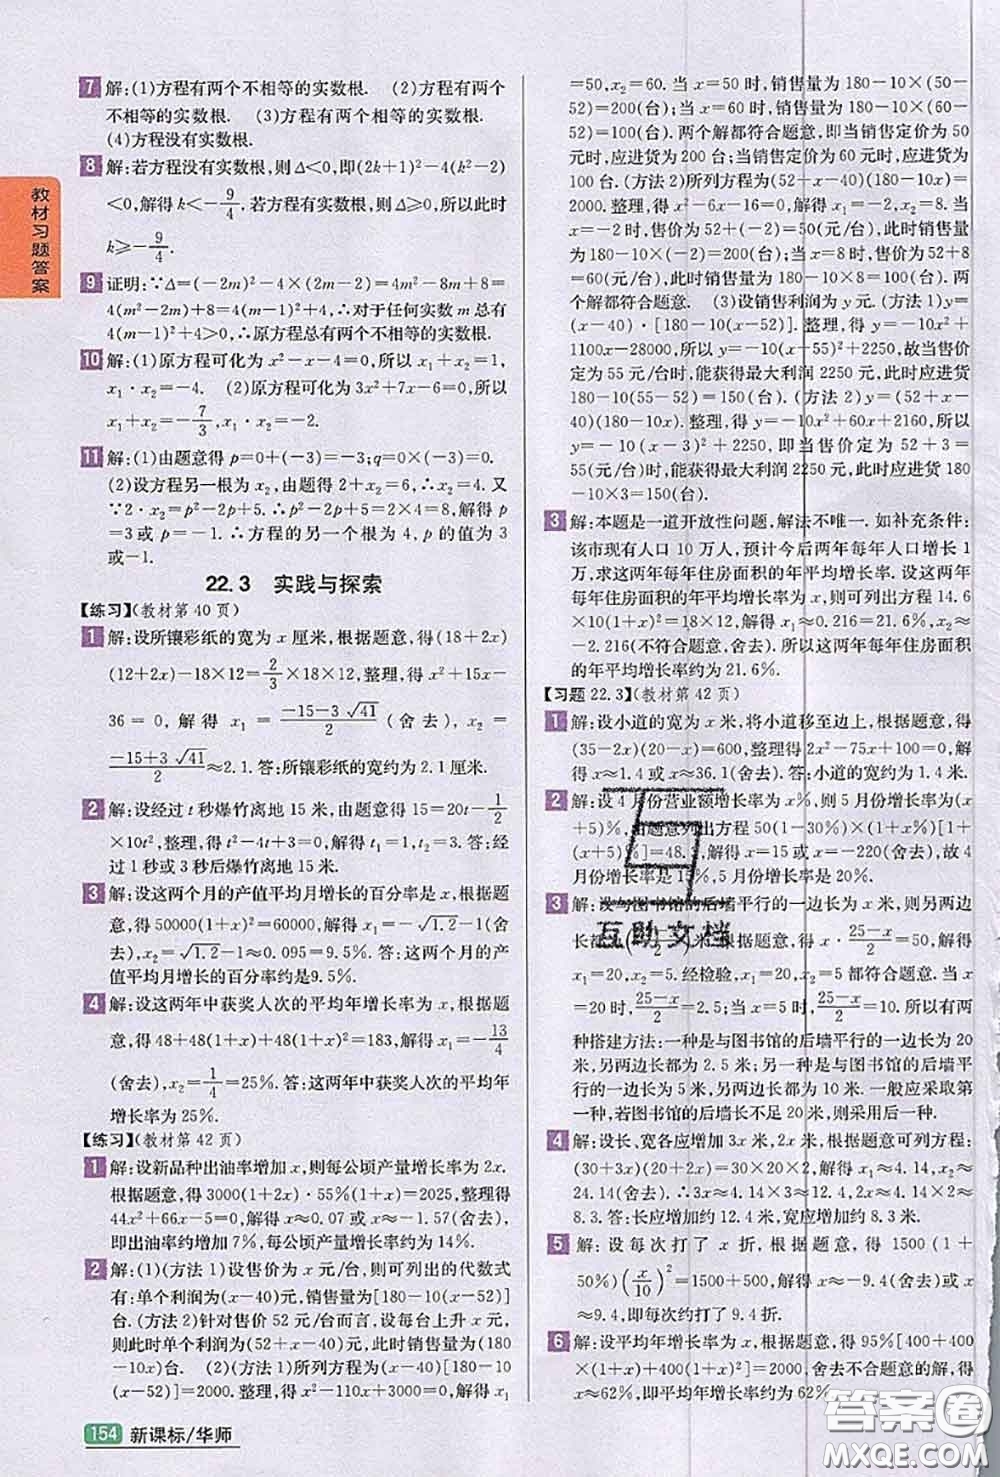 教材习题答案
7 解:(1)方程有两个不相等的实数根. (2)方程有两个
不相等的实数根. (3)方程有两个相等的实数根.
(4)方程没有实数根.
8 解:若方程没有实数根,则 Δ<0,即(2k+1)²-4(k²-2)
<0,解得 k<-9/4. 若方程有实数根,则 Δ≥0,所以此时
k≥-9/4.
9 证明:∵Δ=(-2m)²-4×(2m-2)=4m²-8m+8=
4(m²-2m)+8=4(m-1)²+4,∴对于任何实数 m 总有
4(m-1)²+4>0,∴原方程总有两个不相等的实数根.
10 解:(1)原方程可化为 x²-x-4=0,所以 x₁+x₂=1,
x₁·x₂=-4. (2)原方程可化为 3x²+7x-6=0,所以
x₁+x₂=-7/3,x₁·x₂=-2.
11 解:(1)由题意得 p=0+(-3)=-3;q=0×(-3)=0.
(2)设方程另一根为 x₂,由题意得 2+x₂=6,∴x₂=4. 又
∵2·x₂=p²-2p+5,∴p²-2p+5=2×4=8,解得 p=3
或 p=-1. ∴方程的另一个根为 4, p 的值为 3
或-1.
22.3 实践与探索
【练习】(教材第 40 页)
1 解:设所镶彩纸的宽为 x 厘米,根据题意,得(18+2x)
(12+2x)-18×12=2/3×18×12,整理,得 x²+15x-
36=0,解得 x₁=(-15-3√41)/2(舍去),x₂=
(-15+3√41)/2≈2.1. 答:所镶彩纸的宽约为 2.1 厘米.
2 解:设经过 t 秒爆竹离地 15 米,由题意,得 15=20t-1/2
×10t²,整理,得 t²-4t+3=0,解得 t₁=1,t₂=3. 答:
经过 1 秒或 3 秒后爆竹离地 15 米.
3 解:设这两个月的产值平均月增长的百分率是 x,根据题
意,得 50000(1+x)²=60000,解得 x₁=-√1.2-1(舍
去),x₂=√1.2-1≈0.095=9.5%. 答:这两个月的产
值平均月增长的百分率约是 9.5%.
4 解:设这两年中获奖人次的平均年增长率为 x,根据题意,
得 48+48(1+x)+48(1+x)²=183,解得 x₁=-13/4
(舍去),x₂=1/4=25%. 答:这两年中获奖人次的平均年
增长率为 25%.
【练习】(教材第 42 页)
1 解:设新品种出油率增加 x,则每公顷产量增长率为 2x.
根据题意,得 3000(1+2x)·55%(1+x)=2025,整理得
44x²+66x-9=0,解得 x≈0.07 或 x≈-1.57(舍去),
即出油率约增加 7%,每公顷产量约增加 14%.
2 解:(1)(方法 1)设售价为 x 元/台,则可列出的代数式
有:单个利润为(x-40)元,销售量为[180-10(x-52)]
台. (方法 2)针对售价 52 元/台而言,设每台上升 x 元,
此时单个利润为(52+x-40)元,此时销售量为(180-
10x)台. (2)(方法 1)所列方程为(x-40)[180-10
(x-52)]=2000. 整理,得 x²-110x+3000=0,解得 x₁
154 新课标/华师
=50,x₂=60. 当 x=50 时,销售量为 180-10×(50-
52)=200(台);当 x=60 时,销售量为 180-10×(60-
52)=100(台). 两个解都符合题意,即当销售定价为 50
元时,应进货为 200 台;当定价为 60 元时,应进货为 100
台. (方法 2)所列方程为(52+x-40)(180-10x)=
2000. 整理,得 x²-6x-16=0,解得 x₁=-2,x₂=8. 当
x=-2 时,售价应为 52+(-2)=50(元/台),此时销售量
为 180-10×(-2)=200(台);当 x=8 时,售价应为 52+8
=60(元/台),此时销售量为 180-10×8=100(台),两
个解都符合题意. (3)设销售利润为 y 元. (方法 1)y
=(x-40)·[180-10(x-52)]. 整理,得 y=-10x²+
1100x-28000,所以 y=-10(x-55)²+2250,故当售价
定为 55 元/台时,能获得最大利润 2250 元,此时应进货
180-10(55-52)=150(台). (方法 2)y=(52+x-
40)(180-10x). 整理,得 y=-10x²+60x+2160,所以
y=-10(x-3)²+2250,即当售价定为 52+3=
55(元/台)时,能获得最大利润 2250 元,此时应进货 180
-10×3=150(台).
3 解:本题是一道开放性问题,解法不唯一. 如补充条件:
该市现有人口 10 万人,预计今后两年每年人口增长 1
万,求每年住房面积的年平均增长率. 解法如下:设这两
年每年住房面积的年平均增长率为 x,列方程 14.6
×10(1+x)²=18×12,解得 x₁≈0.216=21.6%,x₂≈
-2.216(不符合题意,舍去). 所以这两年每年住房面积
的年平均增长率约为 21.6%.
【习题 22.3】(教材第 42 页)
1 解:设小道的宽为 x 米,将小道移至边上,根据题意,得
(35-2x)(20-x)=600,整理得 2x²-75x+100=0,解
得 x≈1.4 或 x≈36.1(舍去). 答:小道的宽约为 1.4 米.
2 解:设 4 月份营业额增长率为 x%,则 5 月份增长率为(x
+5)%,由题意列出方程 50(1-30%)×(1+x%)[1+
(x+5)%]=48.3,解得 x=15 或 x=-220(舍去),故 4
月份增长率是 15%,5 月份增长率是 20%.
3 解:设与图书馆的后墙平行的一边长为 x 米,则另一边
x=20 或 x=5. 经检验,x=20,x=5 都符合题意. 当 x
=20 时,(25-x)/2=2.5;当 x=5 时,(25-x)/2=10. 所以有两
种搭建方法:一种是与图书馆的后墙平行的一边长为 20
米,另两边长都为 2.5 米;另一种是与图书馆的后墙平
行的一边长为 5 米,另两边都为 10 米. 一般应采取第
一种,若图书馆的后墙长不足 20 米,则采用后一种.
4 解:设长、宽各应增加 3x 米、2x 米,根据题意可列方程:
(30+3x)(20+2x)=2×30×20,解得 x≈4.14 或 x≈
-24.14(舍去). ∴3x≈4.14×3≈12.4,2x≈4.14×2≈
8.3. 答:长应增加约 12.4 米,宽应增加约 8.3 米.
5 解:设每次打了 x 折,根据题意,得 1500(1+
50%)(x/10)²=1500+500,解得 x≈-9.4(舍去)或 x
≈9.4,即每次约打了 9.4 折.
6 解:设平均年增长率为 x,根据题意,得 95%[400+400
×(1+x)+400(1+x)²]=2000,舍去不合题意的解,得
x≈62%,即平均年增长率约为 62%.
互助文档
答案圈
MXQE.COM